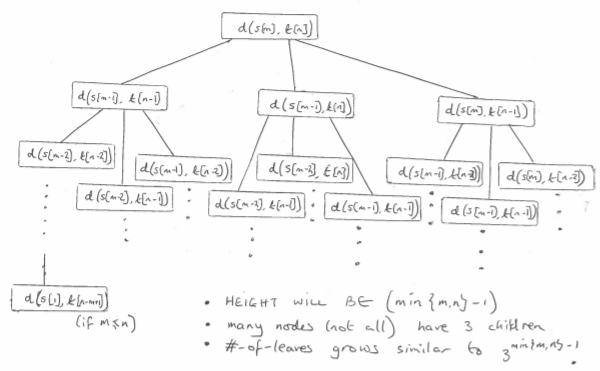 d(s[m], t[n])
d(s[m-1], t[n-1]) d(s[m-1], t[n]) d(s[m], t[n-1])
d(s[m-2], t[n-2]) d(s[m-1], t[n-2]) d(s[m-2], t[n]) d(s[m-1], t[n-2]) d(s[m], t[n-2])
d(s[m-2], t[n-1]) d(s[m-2], t[n-1]) d(s[m-1], t[n-1]) d(s[m-1], t[n-1])
d(s[1], t[n-m+1])
(if m≤n)
• HEIGHT WILL BE (min{m,n}-1)
• many nodes (not all) have 3 children
• #-of-leaves grows similar to 3^min{m,n}-1.